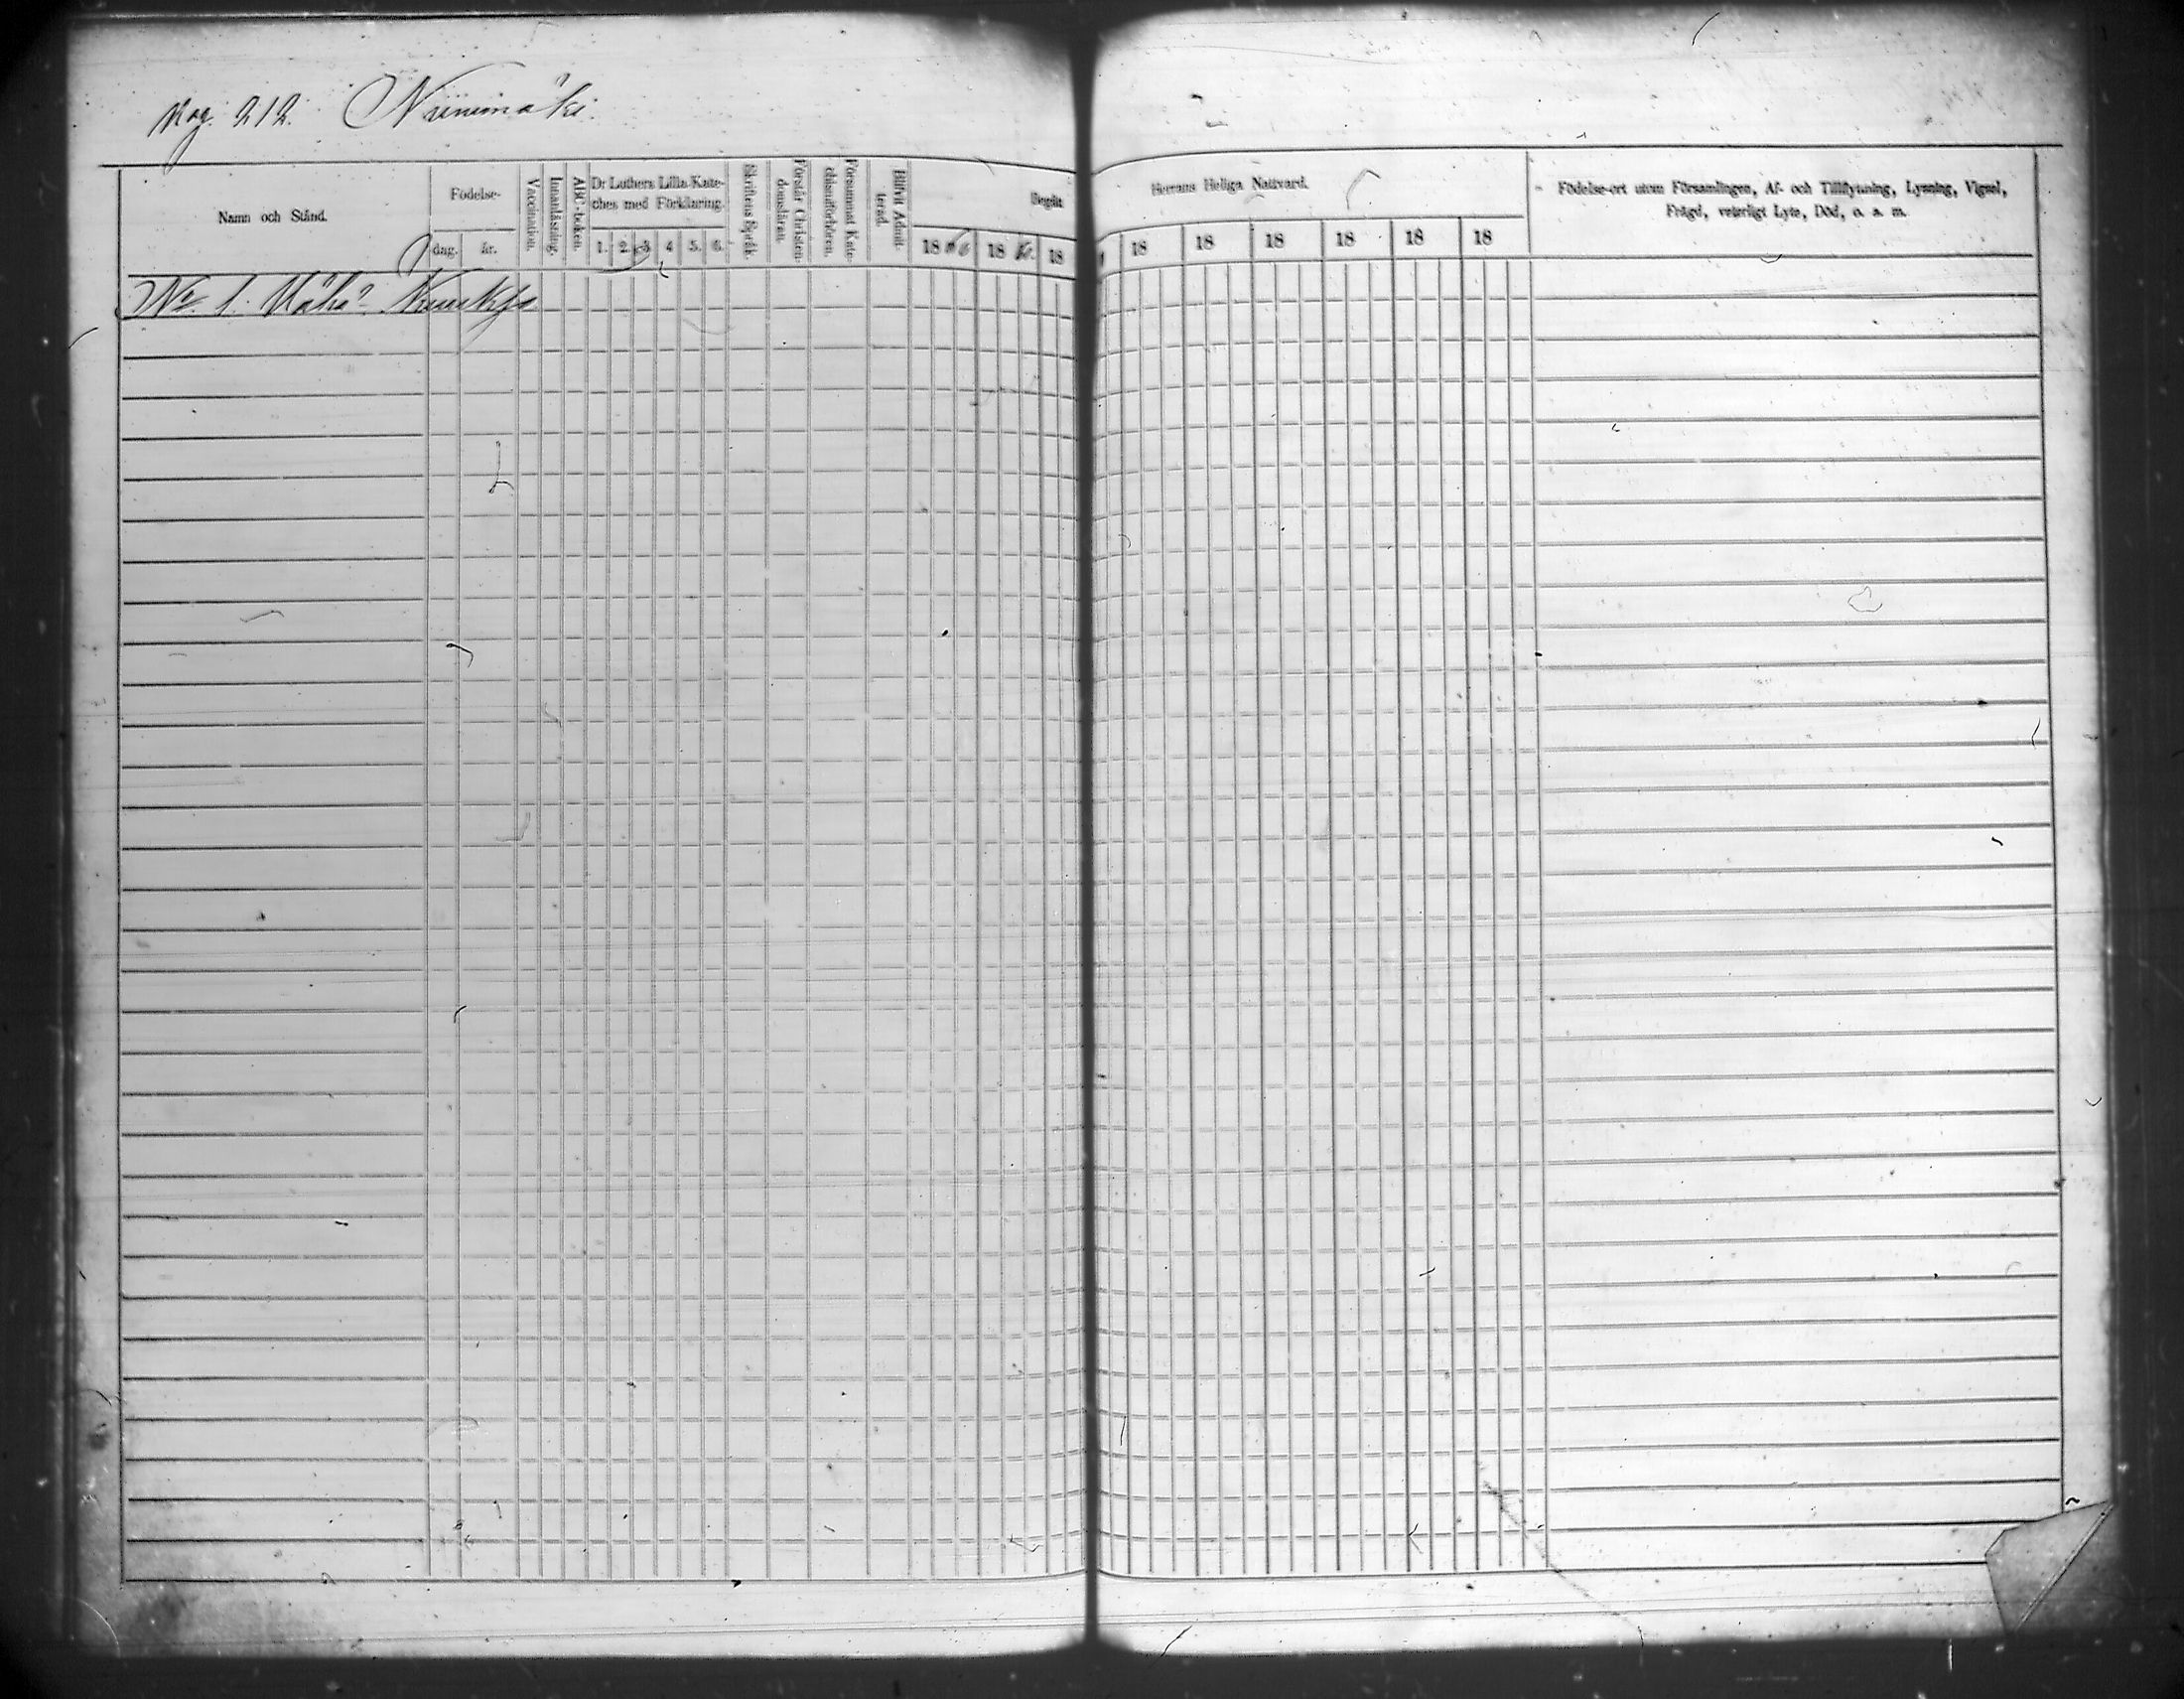 Pag. 212. Niinimäki.
Namn och Stånd.
Födelse-
dag. år.
Vaccination.
Innanläsning.
ABC-boken.
Dr Luthers Lilla Kate-
ches med Förklaring.
1. 2. 3. 4 5. 6.
Skriftens Språk.
Förstår Christen-
domsläran.
Försummat Kate-
chismiförhören.
Blifvit Admit-
terad.
Begått Herrans Heliga Nattvard.
18 18 18 18 18 18 18 18 18
Födelse-ort utom Församlingen, Af- och Tillflyttning, Lysning, Vigsel,
Frägd, veterligt Lyte, Död, o. s. m.
No. 1.